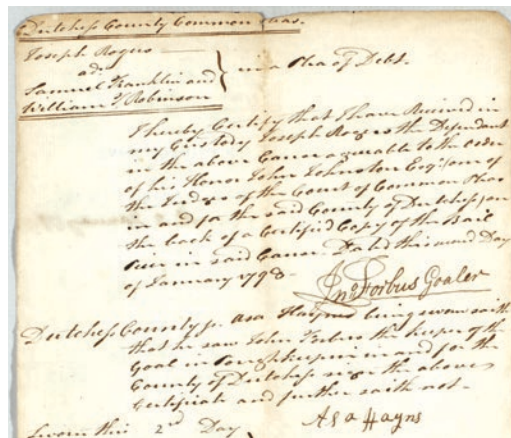 Dutchess County Common Pleas.
Joseph Rogers
ads
Samuel Franklin and
William T Robinson
} in a Plea of Debt.
I hereby Certify that I have Received in
my Custody Joseph Rogers the Defendant
in the above Cause agreeable to the order
of his Honor John Johnston Esqr. one of
the Judges of the Court of Common Pleas
in and for the said County of Dutchess, on
the back of a Certified Copy of the Bail
Piece in said Cause. Dated this second Day
of January 1798
Jno. Forbus Goaler
Dutchess County ss. Asa Hayns being sworn saith
that he saw John Forbus the keeper of the
Goal in Poughkeepsie in and for the
County of Dutchess sign the above
Certificate and further saith not.
Asa Hayns
Sworn this 2nd Day